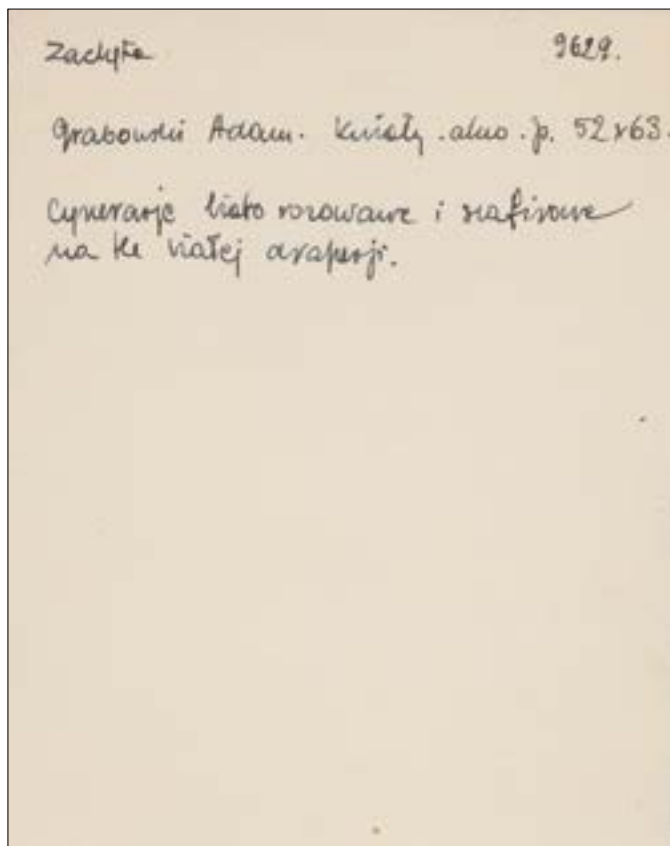 Zachęta 9629.
Grabowski Adam. Kwiaty. akw. p. 52x63.
Cynerarje biało rozowawe i szafirowe
na tle białej draperji.